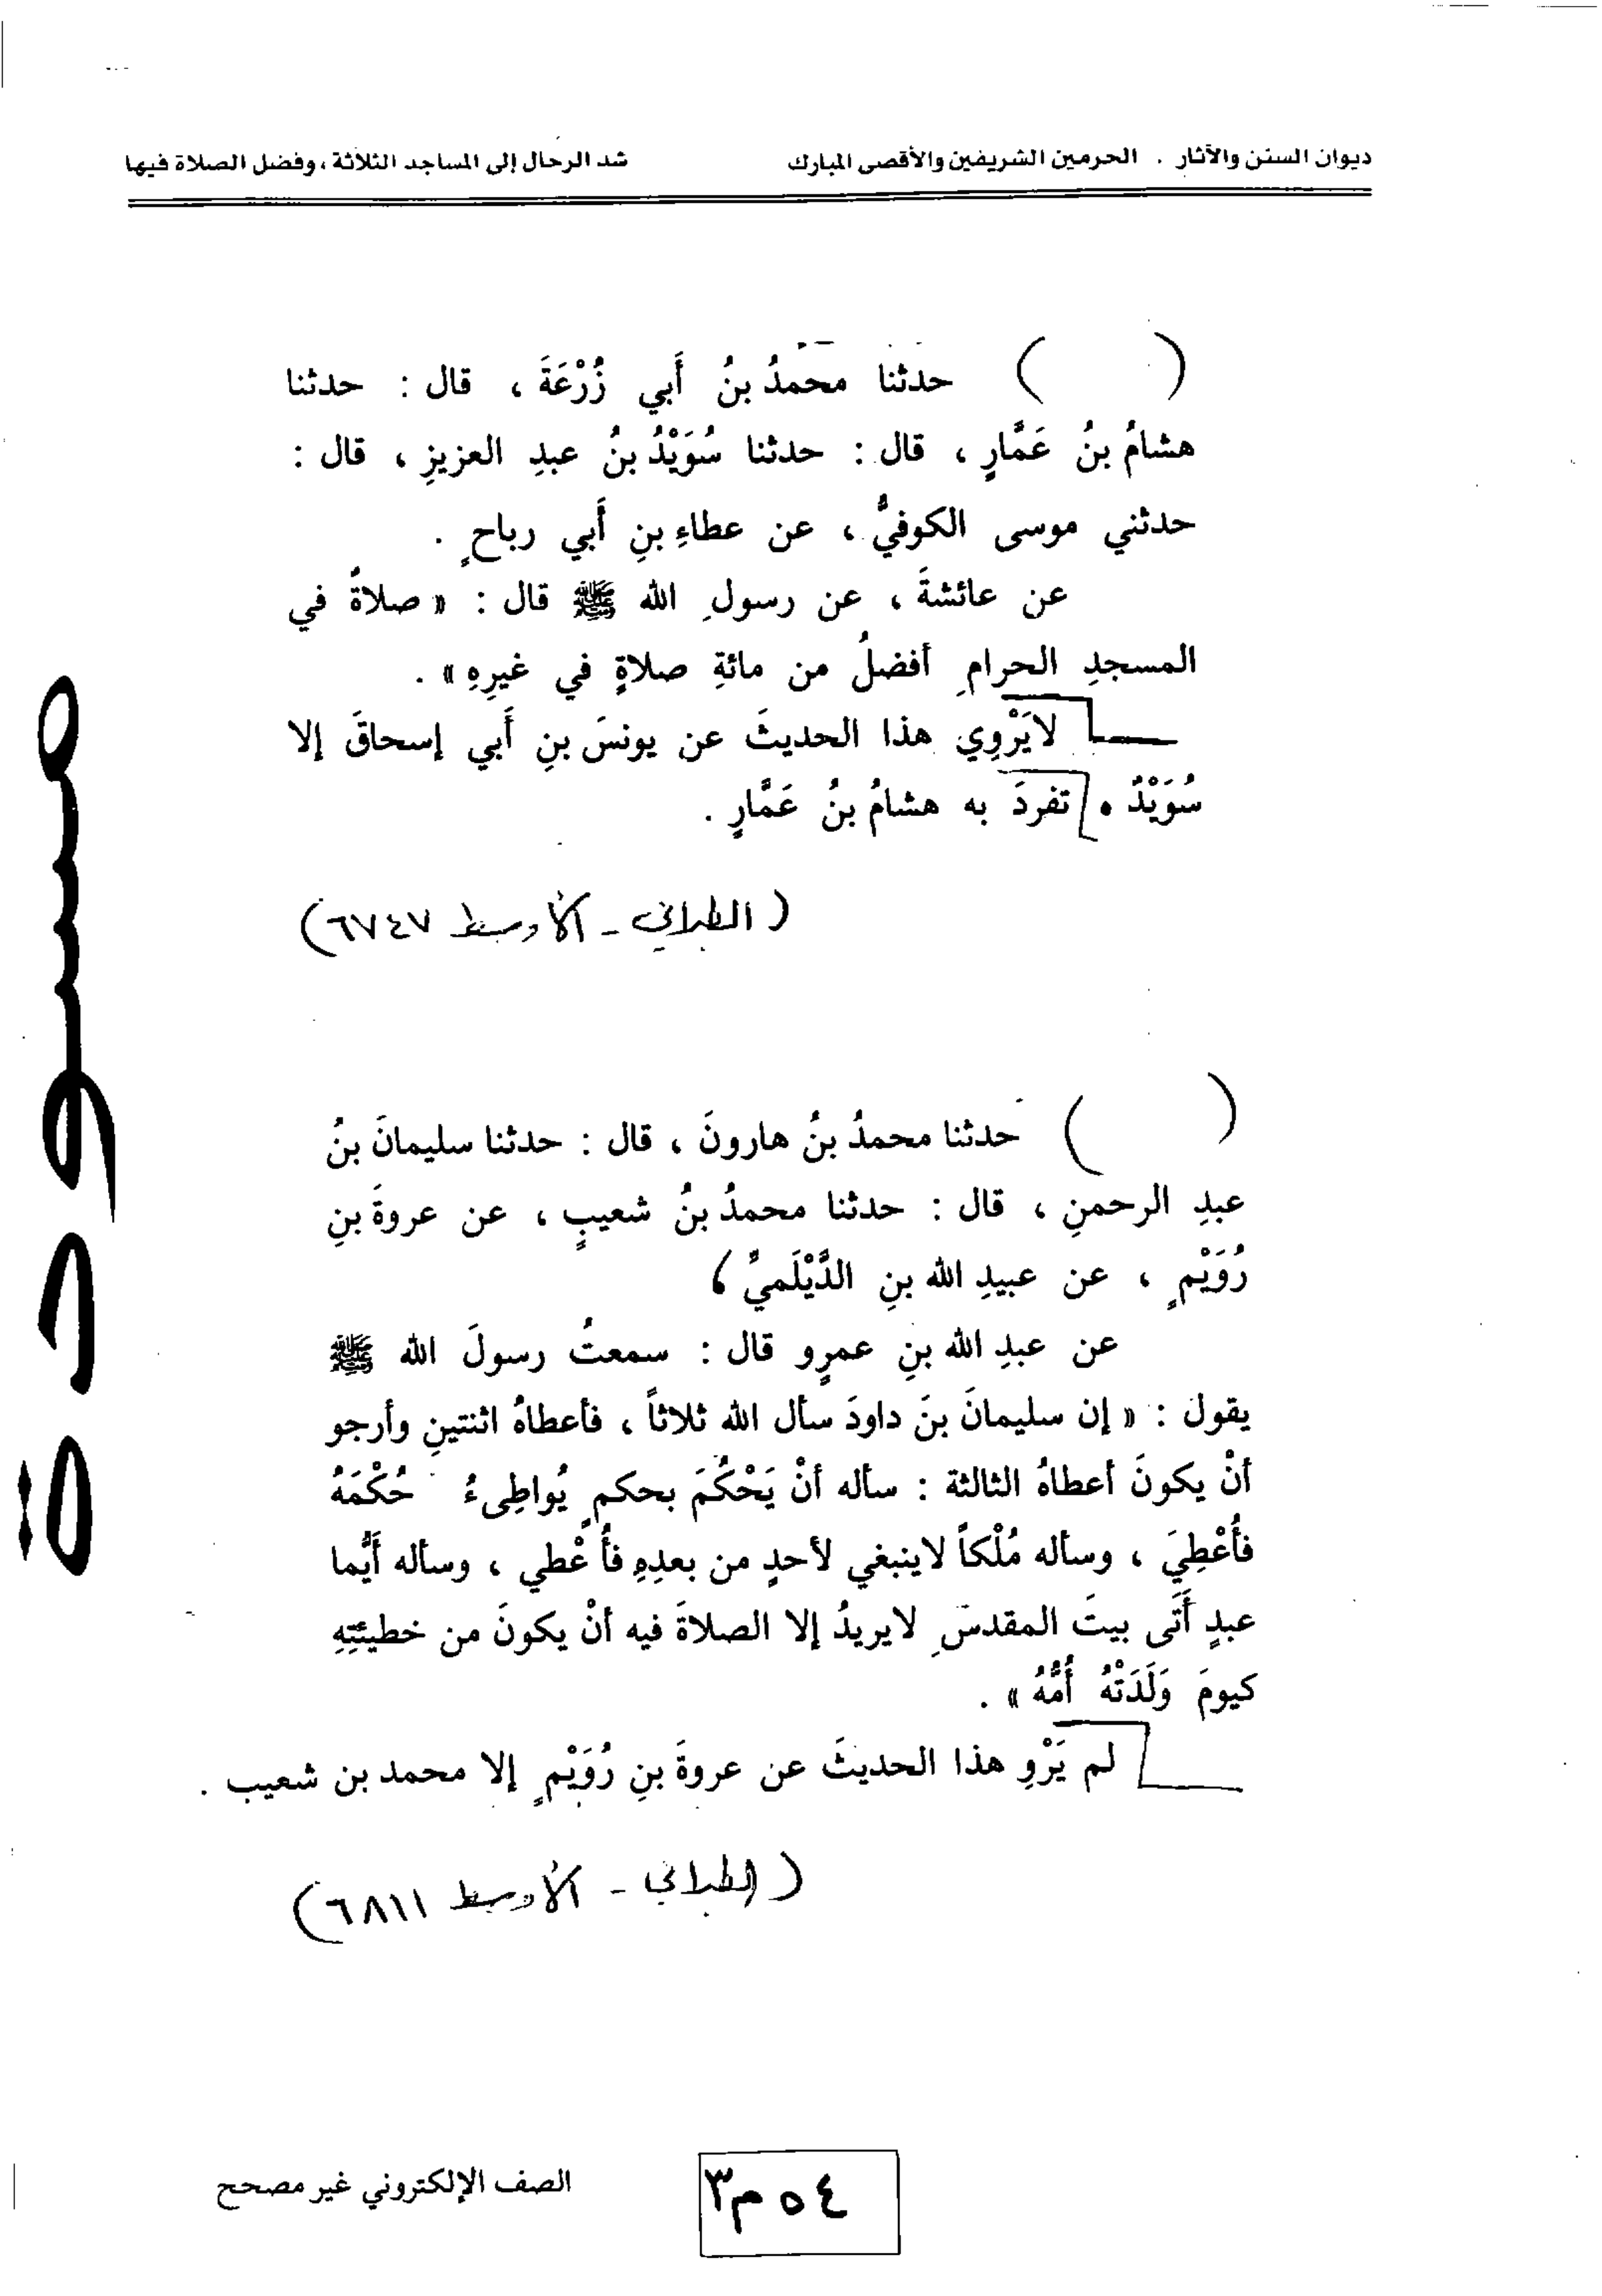 ديوان السنن والآثار . الحرمين الشريفين والأقصى المبارك
شد الرحال إلى المساجد الثلاثة، وفضل الصلاة فيها
( ) حدثنا محمدُ بنُ أَبي زُرْعَةَ ، قال : حدثنا
هشامُ بنُ عَمَّارٍ ، قال : حدثنا سُوَيْدُ بنُ عبدِ العزيزِ ، قال :
حدثني موسى الكوفيُّ ، عن عطاءِ بنِ أَبي رباحٍ .
عن عائشةَ ، عن رسولِ الله ﷺ قال : « صلاةٌ في
المسجدِ الحرامِ أفضلُ من مائةِ صلاةٍ في غيرِهِ » .
لايَرْوِي هذا الحديثَ عن يونسَ بنِ أَبي إسحاقَ إلا
سُوَيْدٌ . تفردَ به هشامُ بنُ عَمَّارٍ .
( الطبراني - الأوسط ٦٧٤٧ )
( ) حدثنا محمدُ بنُ هارونَ ، قال : حدثنا سليمانَ بنُ
عبدِ الرحمنِ ، قال : حدثنا محمدُ بنُ شعيبٍ ، عن عروةَ بنِ
رُوَيْمٍ ، عن عبيدِ الله بنِ الدَّيْلَميِّ ،
عن عبدِ الله بنِ عمرٍو قال : سمعتُ رسولَ الله ﷺ
يقول : « إن سليمانَ بنَ داودَ سأل الله ثلاثاً ، فأعطاهُ اثنتينِ وأرجو
أنْ يكونَ أعطاهُ الثالثة : سأله أنْ يَحْكُمَ بحكمٍ يُواطِىءُ حُكْمَهُ
فأُعْطِيَ ، وسأله مُلْكاً لاينبغي لأحدٍ من بعدِهِ فأُعْطي ، وسأله أيَّما
عبدٍ أَتَى بيتَ المقدسِ لايريدُ إلا الصلاةَ فيه أنْ يكونَ من خطيئتِهِ
كيومَ وَلَدَتْهُ أُمُّهُ » .
لم يَرْوِ هذا الحديثَ عن عروةَ بنِ رُوَيْمٍ إلا محمد بن شعيب .
( الطبراني - الأوسط ٦٨١١ )
مسودة
٥٤ م٣
الصف الإلكتروني غير مصحح